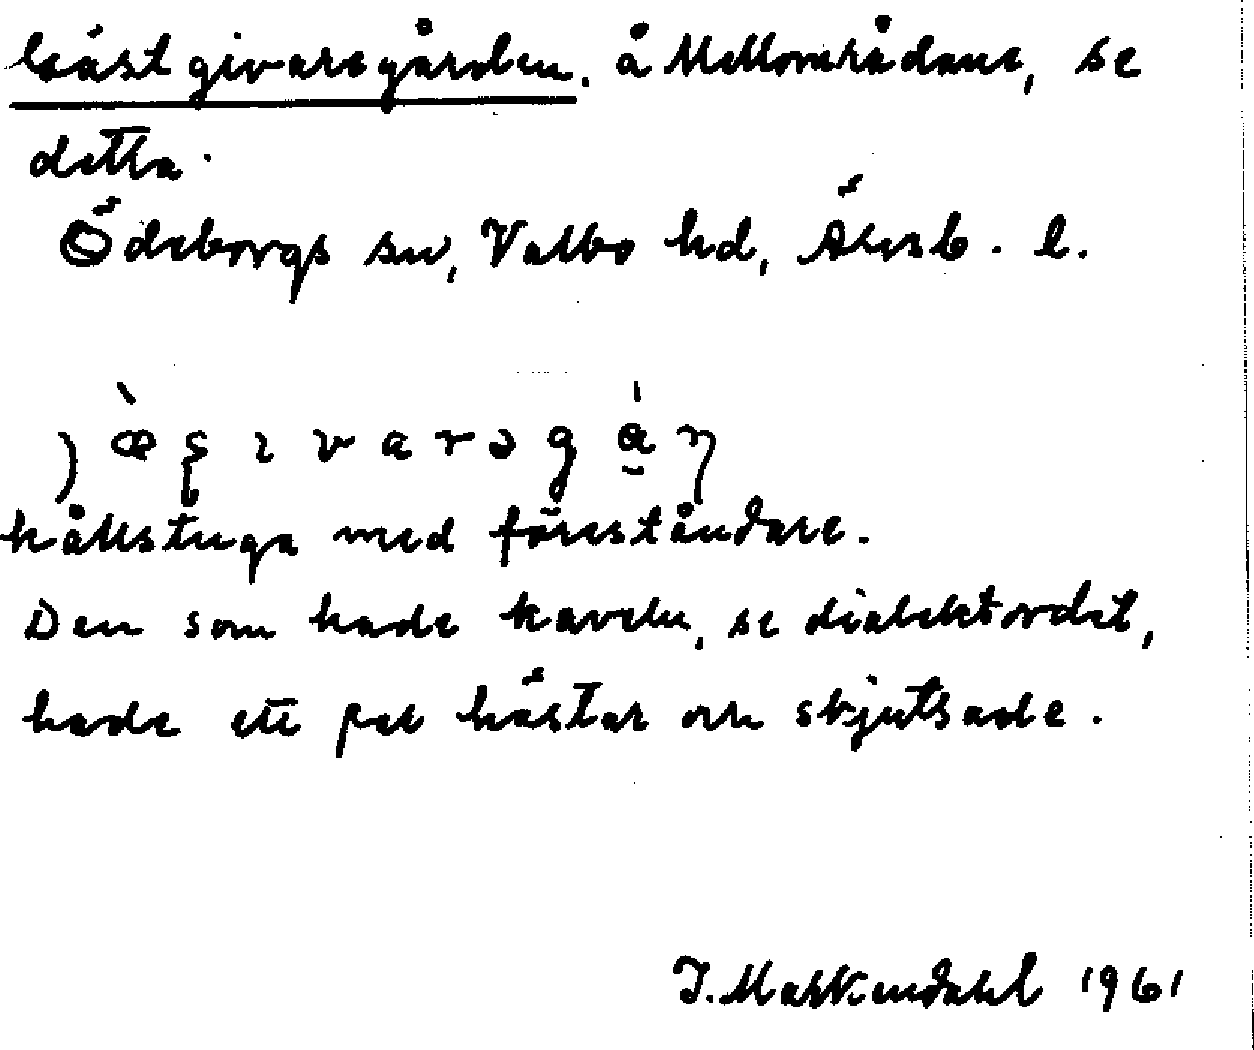 Gästgivaregården. å Mellområdane, se
detta.
Ödeborgs sn, Valbo hd, Älvsb. l.
hållstuga med föreståndare.
Den som hade kaveln, se dialektordet,
hade ett par hästar och skjutsade.
1961